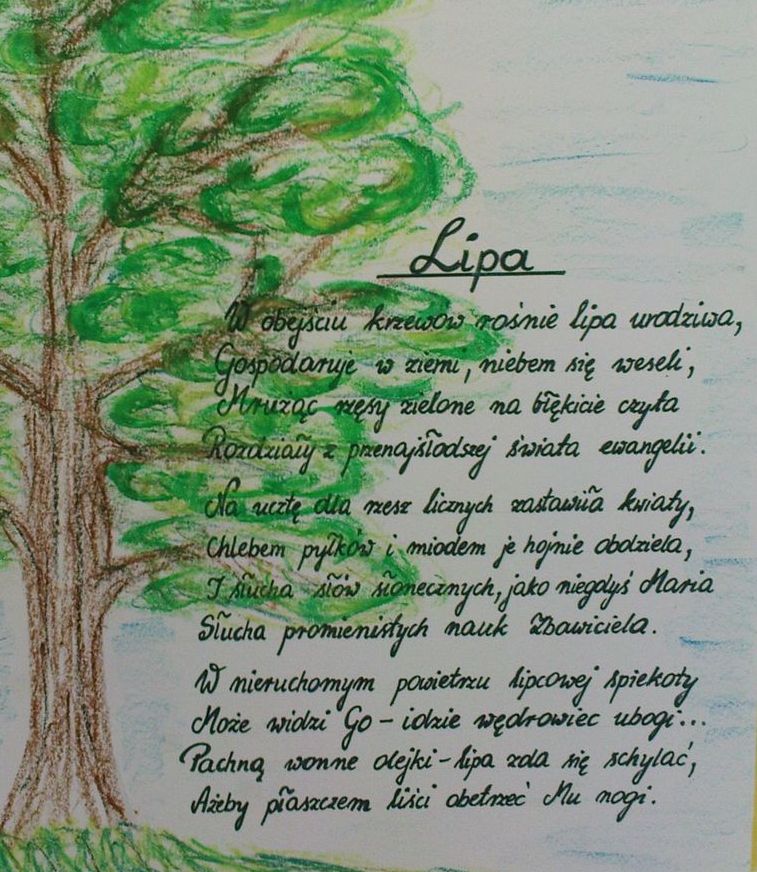 Lipa
W obejściu krzewów rośnie lipa urodziwa,
Gospodaruje w ziemi, niebem się weseli,
Mrużąc rzęsy zielone na błękicie czyta
Rozdziały z przenajsłodszej świata ewangelii.
Na ucztę dla rzesz licznych zastawiła kwiaty,
Chlebem pyłków i miodem je hojnie obdziela,
I słucha słów słonecznych, jako niegdyś Maria
Słucha promienistych nauk Zbawiciela.
W nieruchomym powietrzu lipcowej spiekoty
Może widzi Go - idzie wędrowiec ubogi...
Pachną wonne olejki - lipa zda się schylać,
Ażeby płaszczem liści obetrzeć Mu nogi.